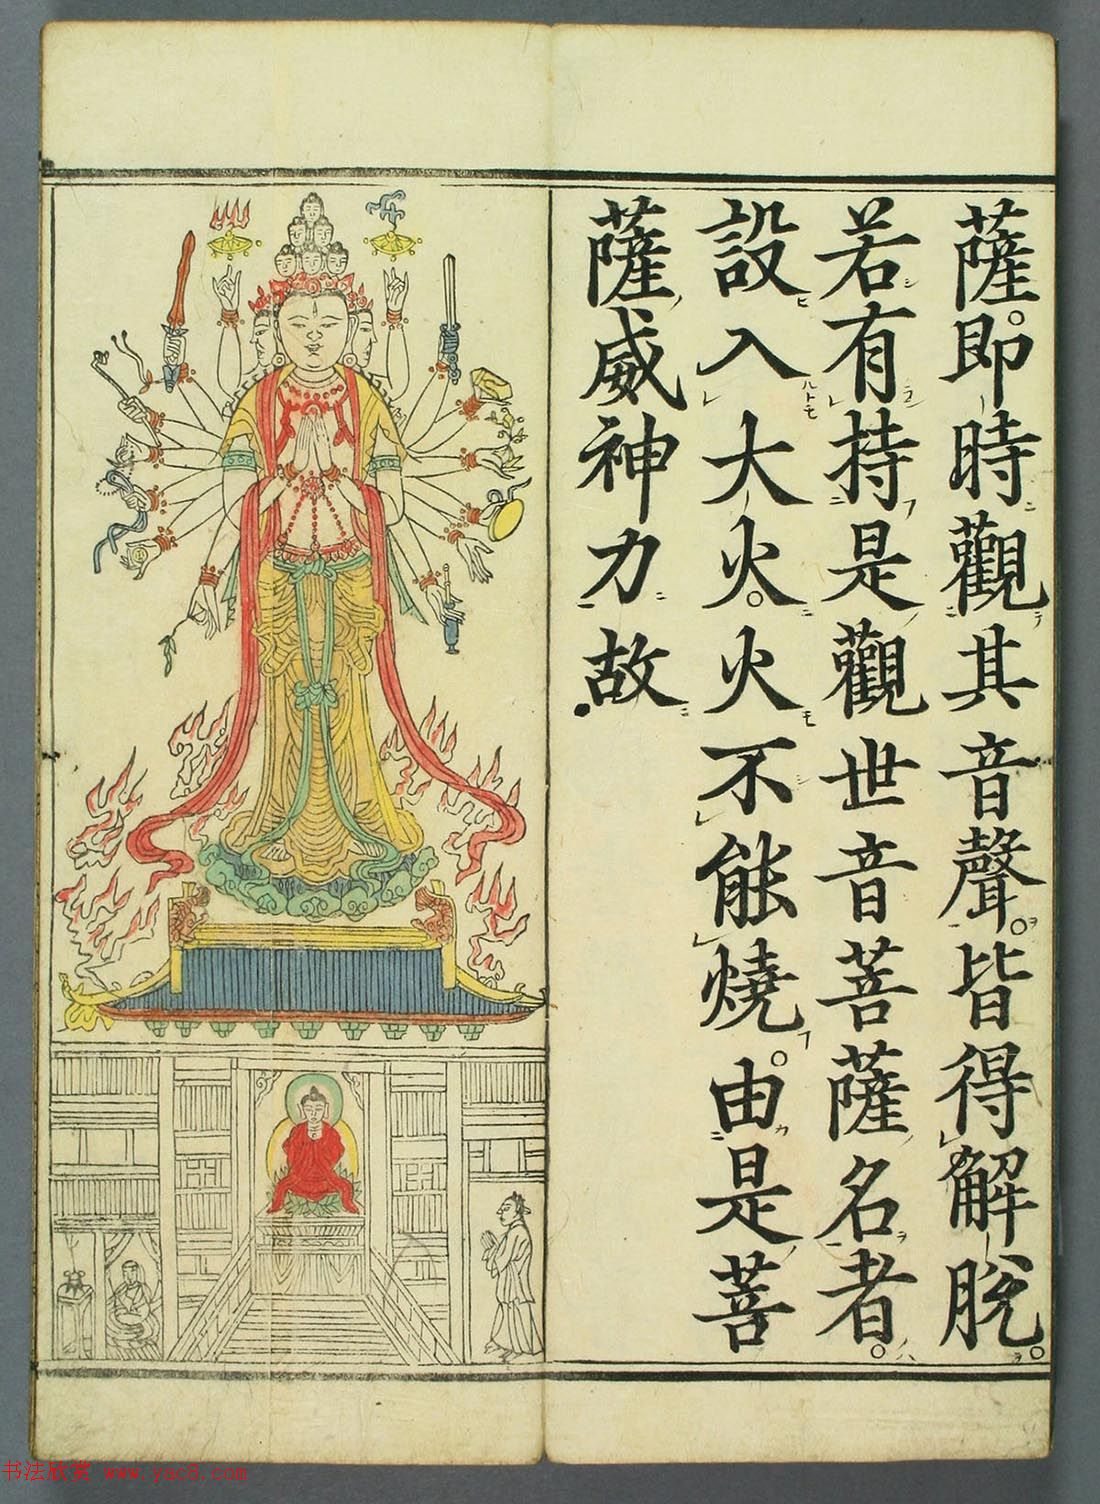 薩。即時觀其音聲。皆得解脫。
若有持是觀世音菩薩名者。
設入大火。火不能燒。由是菩
薩威神力故
书法欣赏 www.yac8.com